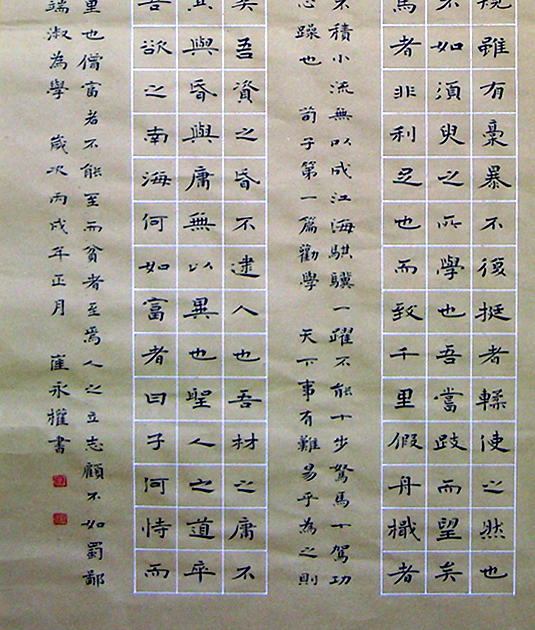 規雖有槀暴不復挺者輮使之然也
不如須臾之所學也吾嘗跂而望矣
馬者非利足也而致千里假舟檝者
不積小流無以成江海騏驥一躍不能十步駑馬十駕功
心躁也 荀子第一篇勸學 天下事有難易乎為之則
矣吾資之昏不逮人也吾材之庸不
其與昏與庸無以異也聖人之道卒
吾欲之南海何如富者曰子何恃而
里也僧富者不能至而貧者至焉人之立志顧不如蜀鄙
端淑為學 歲次丙戌年正月 崔永權書